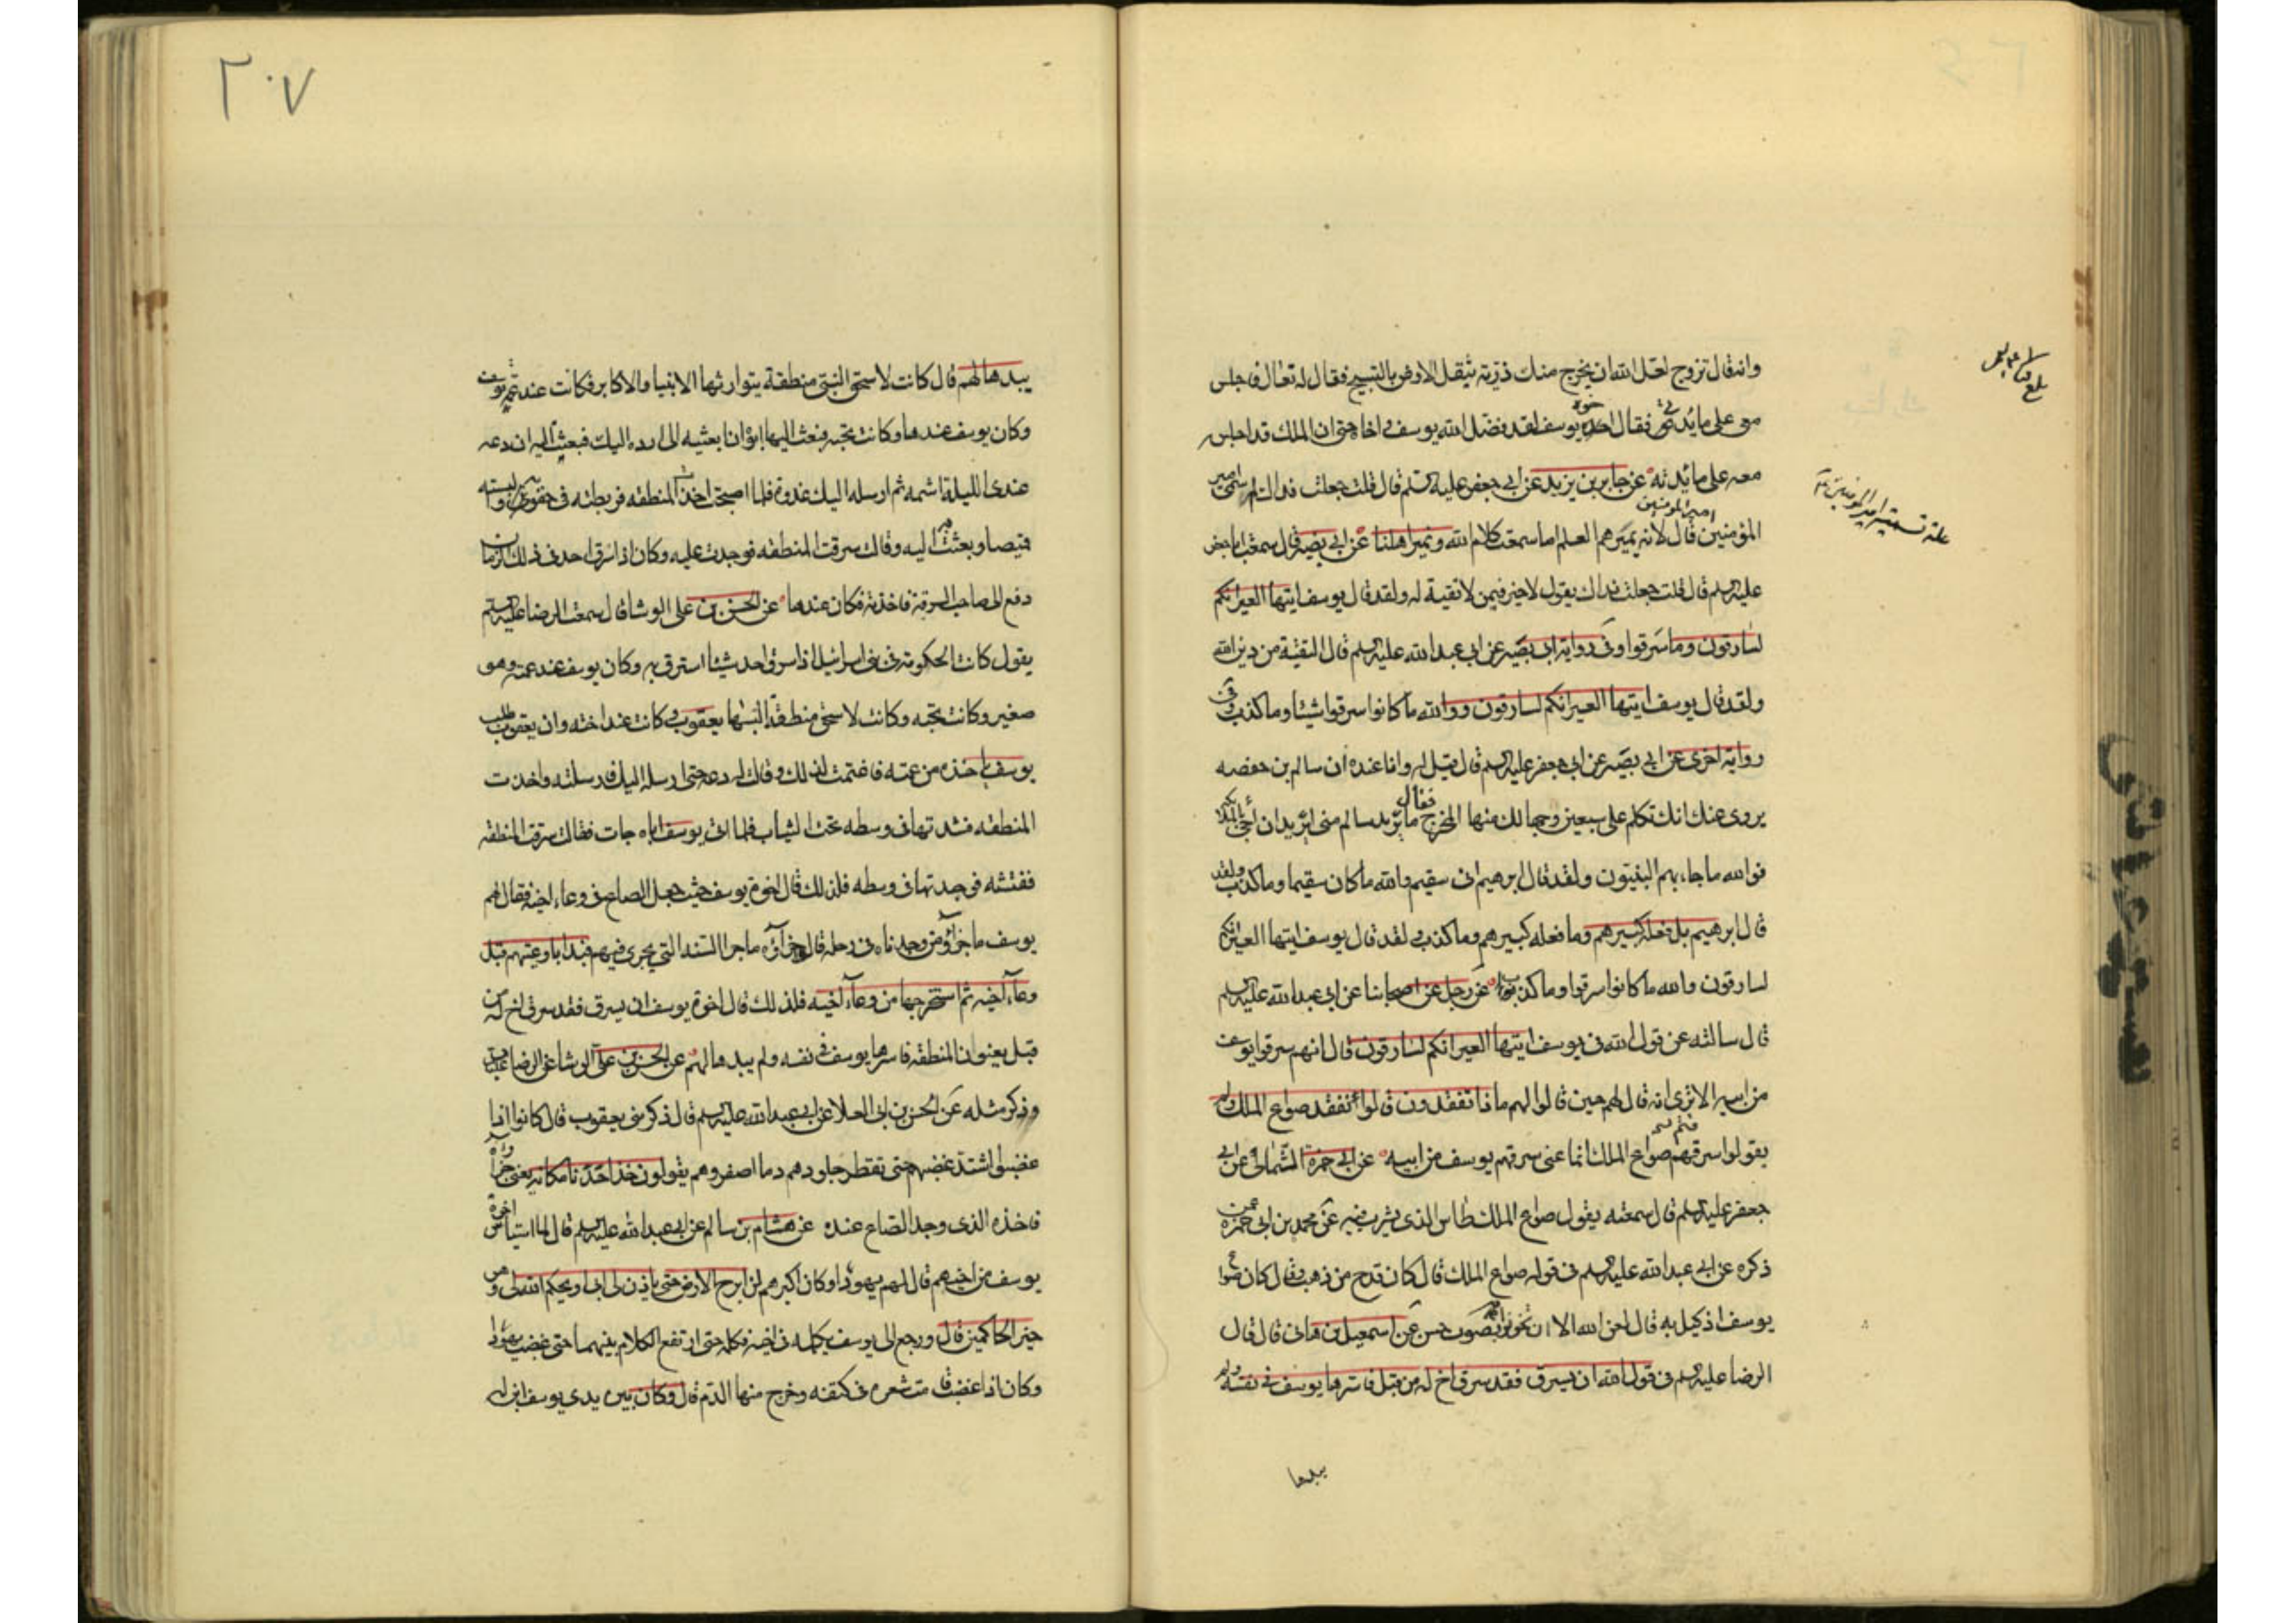 وانه قال تزوج لعل الله ان يخرج منك ذرية يثقل الارض بالتسبيح فقال له تعال فاجلس
معى على مائدتى فقال اخوة يوسف لقد فضل الله يوسف واخاه حتى ان الملك قد اجلسه
معه على مائدته عن جابر بن يزيد عن ابى جعفر عليه السلم قال قلت جعلت فداك لم سمى امير
المؤمنين امير المؤمنين قال لانه يميرهم العلم اما سمعت كلام الله ونمير اهلنا عن ابى بصير قال سمعت ابا جعفر
عليه السلم قال قلت جعلت فداك يقول لا خير فيمن لا تقية له ولقد قال يوسف ايتها العير انكم
لسارقون وما سرقوا وفى رواية ابى بصير عن ابى عبد الله عليه السلم قال التقية من دين الله
ولقد قال يوسف ايتها العير انكم لسارقون ووالله ما كانوا سرقوا شيئا وما كذب وفى
رواية اخرى عن ابى بصير عن ابى جعفر عليه السلم قال قيل له وانا عنده ان سالم بن حفصه
يروى عنك انك تكلم على سبعين وجها لك منها المخرج فقال ما يريد سالم منى ايريد ان اجئ بالملائكة
فوالله ما جاء بهم النبيون ولقد قال ابرهيم انى سقيم والله ما كان سقيما وما كذب ولقد
قال ابرهيم بل فعله كبيرهم وما فعله كبيرهم وما كذب ولقد قال يوسف ايتها العير انكم
لسارقون والله ما كانوا سرقوا وما كذب عن رجل عن اصحابنا عن ابى عبد الله عليه السلم
قال سالته عن قول الله فى يوسف ايتها العير انكم لسارقون قال انهم سرقوا يوسف
من ابيه الا ترى انه قال لهم حين قالوا لهم ماذا تفقدون قالوا نفقد صواع الملك ولم
يقولوا سرقتم صواع الملك انما عنى سرقتم يوسف من ابيه عن ابى حمزة الثمالى عن ابى
جعفر عليه السلم قال سمعته يقول صواع الملك طاس الذى يشرب فيه عن محمد بن ابى حمزة عمن
ذكره عن ابى عبد الله عليه السلم فى قوله صواع الملك قال كان قدح من ذهب وقال كان صواع
يوسف اذ كيل به قال لعن الله الا ان تخونوا به بصوت حسن عن اسمعيل بن همام قال قال
الرضا عليه السلم فى قول الله ان يسرق فقد سرق اخ له من قبل فاسرها يوسف فى نفسه ولم
يبدها
علة تسمية امير المؤمنين
٢٠٧
يبدها لهم قال كانت لاسحق النبى منطقة يتوارثها الانبيا والاكابر فكانت عند عمة يوسف
وكان يوسف عندها وكانت تحبه فبعث اليها ابوه ان ابعثيه الى ارده اليك فبعثت اليه ان دعه
عندى الليلة اشمه ثم ارسله اليك غدوة فلما اصبحت اخذت المنطقه فربطته فى حقوه والبسته
قميصا وبعثت به اليه وقالت سرقت المنطقه فوجدت عليه وكان اذا سرق احد فى ذلك الزمان
دفع الى صاحب السرقة فاخذته فكان عندها عن الحسن بن على الوشا قال سمعت الرضا عليه السلم
يقول كانت الحكومة فى بنى اسرائيل اذا سرق احد شيئا استرق به وكان يوسف عند عمته وهو
صغير وكانت تحبه وكانت لاسحق منطقة البسها يعقوب وكانت عند اخته وان يعقوب طلب
يوسف ياخذه من عمته فاغتمت لذلك وقالت له دعه حتى ارسله اليك فارسلته واخذت
المنطقه فشدتها فى وسطه تحت الثياب فلما اتى يوسف اباه جات فقالت سرقت المنطقه
ففتشته فوجدتها فى وسطه فلذلك قال اخوة يوسف حيث جعل الصاع فى وعاء اخيه فقال لهم
يوسف ما جزاؤ من وجدناه فى رحله قال جزاؤه ماجرا السنة التى يجرى فيهم فبدا باوعيتهم قبل
وعاء اخيه ثم استخرجها من وعاء اخيه فلذلك قال اخوة يوسف ان يسرق فقد سرق اخ له من
قبل يعنون المنطقه فاسرها يوسف فى نفسه ولم يبدها لهم عن الحسن بن على الوشا عن الرضا عليه السلم
وذكر مثله عن الحسن بن ابى العلا عن ابى عبد الله عليه السلم قال ذكر بنى يعقوب قال كانوا اذا
غضبوا اشتد غضبهم حتى تقطر جلودهم دما اصفر وهم يقولون خذ احدنا مكانه يعنى جزاؤه
فاخذه الذى وجد الصاع عنده عن هشام بن سالم عن ابى عبد الله عليه السلم قال لما استياس اخوة
يوسف من اخيهم قال لهم يهودا وكان اكبرهم لن ابرح الارض حتى ياذن لى ابى او يحكم الله لى وهو
خير الحاكمين قال ورجع الى يوسف يكلمه فى اخيه فكلمه حتى ارتفع الكلام بينهما حتى غضب يهودا
وكان اذا غضب قامت شعره فى كتفه وخرج منها الدم قال وكان بين يدى يوسف ابن له